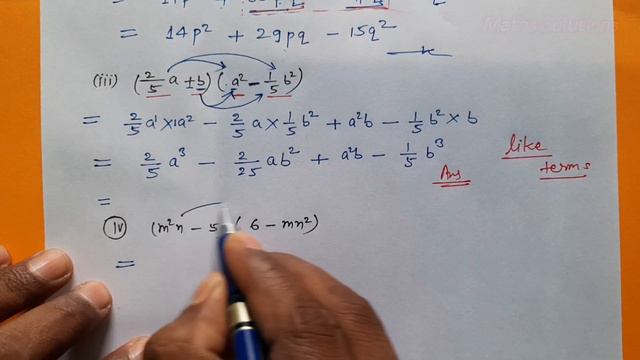 = 14p² + 29pq - 15q²
(iii) (2/5 a + b) (a² - 1/5 b²)
= 2/5 a¹ × 1a² - 2/5 a × 1/5 b² + a²b - 1/5 b² × b
= 2/5 a³ - 2/25 ab² + a²b - 1/5 b³ Ans
like terms
=
(iv) (m²n - 5 ( 6 - mn²)
=